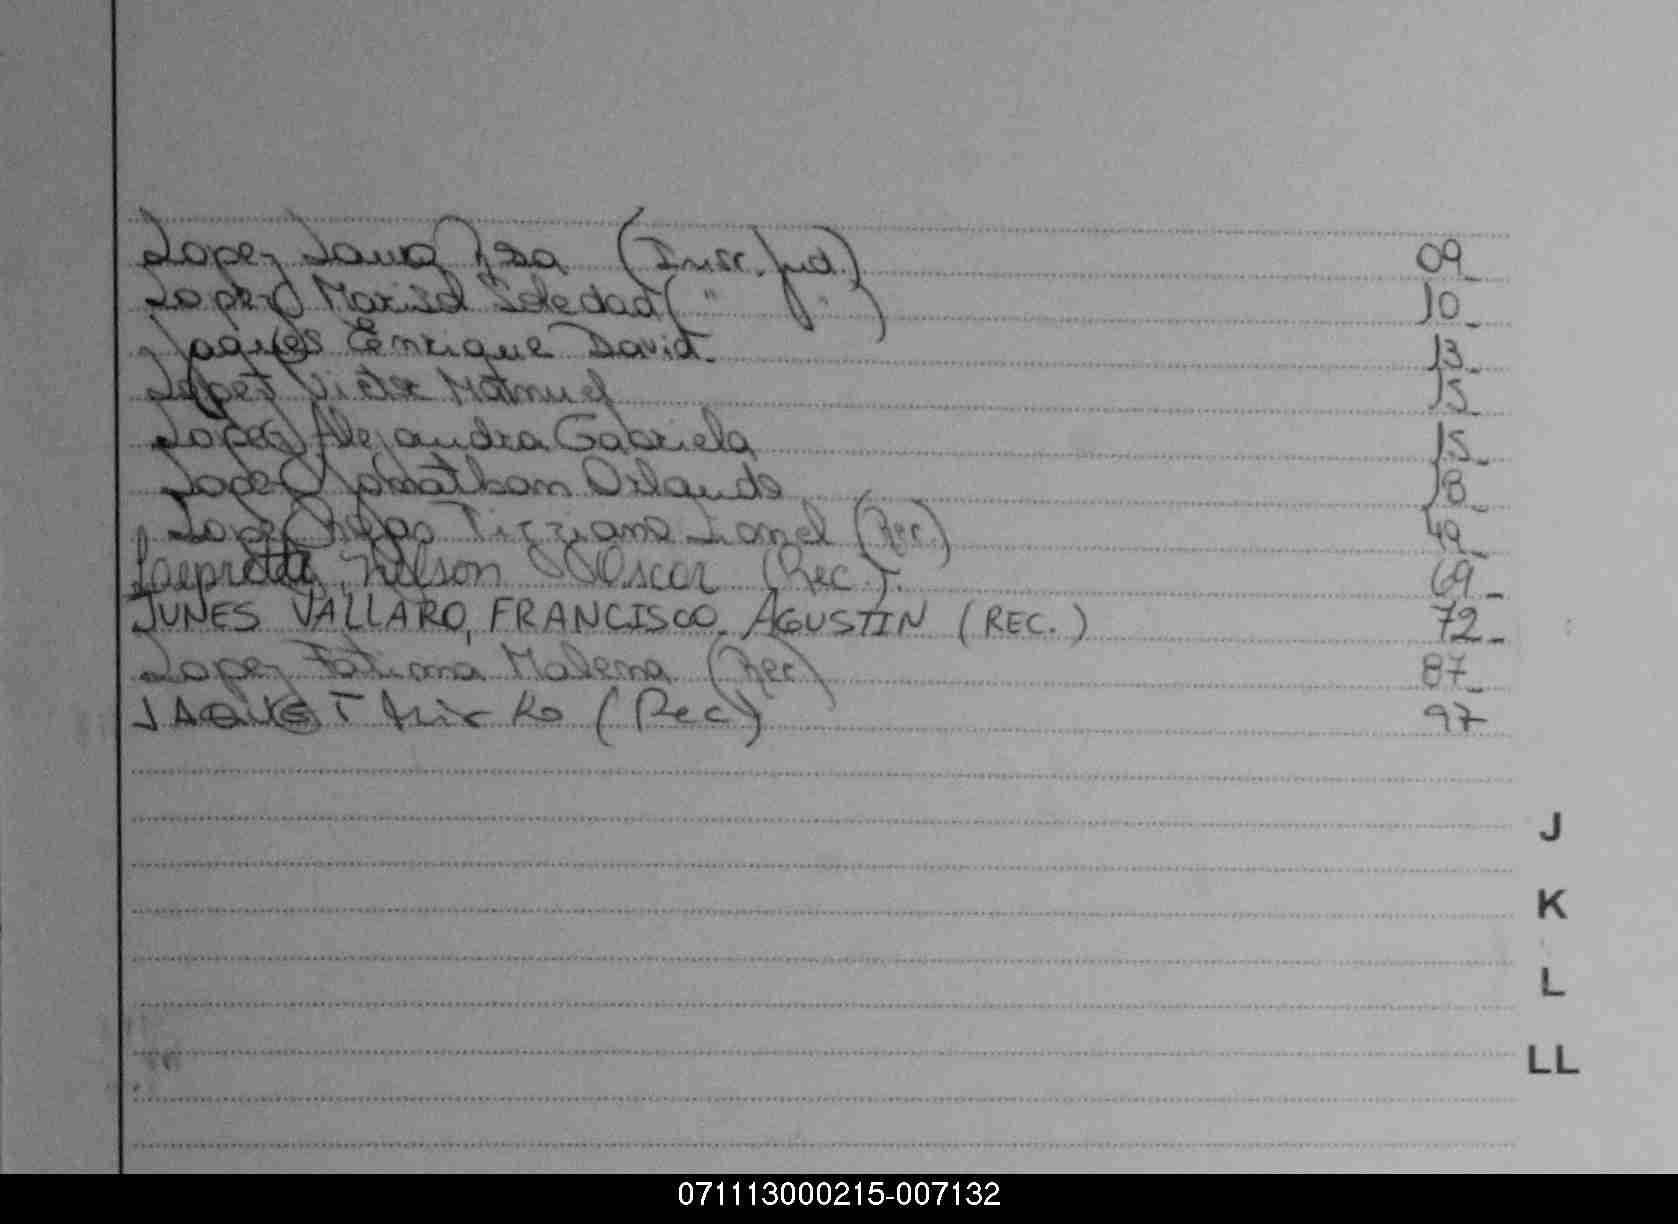 Lopez Isa (Inscr. Jud.) 09
Lopez Marisol Soledad ( " " ) 10
Jaques Enrique David. 13
Lopez Victor Manuel 15
Lopez Alejandra Gabriela 15
Lopez Jonathan Orlando 18
Lopez Tizziano Lionel (Rec.) 49
Nelson Oscar (Rec.). 69
JUNES VALLARO, FRANCISCO AGUSTIN (REC.) 72
Lopez Fatima Malena (Rec) 87
JAQUET Mirko (Rec) 97
J
K
L
LL
071113000215-007132